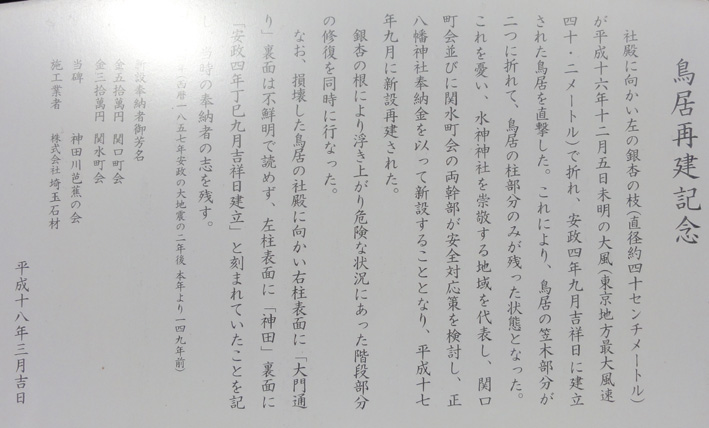 鳥居再建記念
社殿に向かい左の銀杏の枝(直径約四十センチメートル)
が平成十六年十二月五日未明の大風(東京地方最大風速
四十・二メートル)で折れ、安政四年九月吉祥日に建立
された鳥居を直撃した。これにより、鳥居の笠木部分が
二つに折れて、鳥居の柱部分のみが残った状態となった。
これを憂い、水神神社を崇敬する地域を代表し、関口
町会並びに関水町会の両幹部が安全対応策を検討し、正
八幡神社奉納金を以って新設することとなり、平成十七
年九月に新設再建された。
銀杏の根により浮き上がり危険な状況にあった階段部分
の修復を同時に行なった。
なお、損壊した鳥居の社殿に向かい右柱表面に「大門通
り」裏面は不鮮明で読めず、左柱表面に「神田」裏面に
「安政四年丁巳九月吉祥日建立」と刻まれていたことを記
し、当時の奉納者の志を残す。
西暦一八五七年安政の大地震の二年後 本年より一四九年前)
新設奉納者御芳名
金五拾萬円 関口町会
金三拾萬円 関水町会
当碑 神田川芭蕉の会
施工業者 株式会社埼玉石材
平成十八年三月吉日